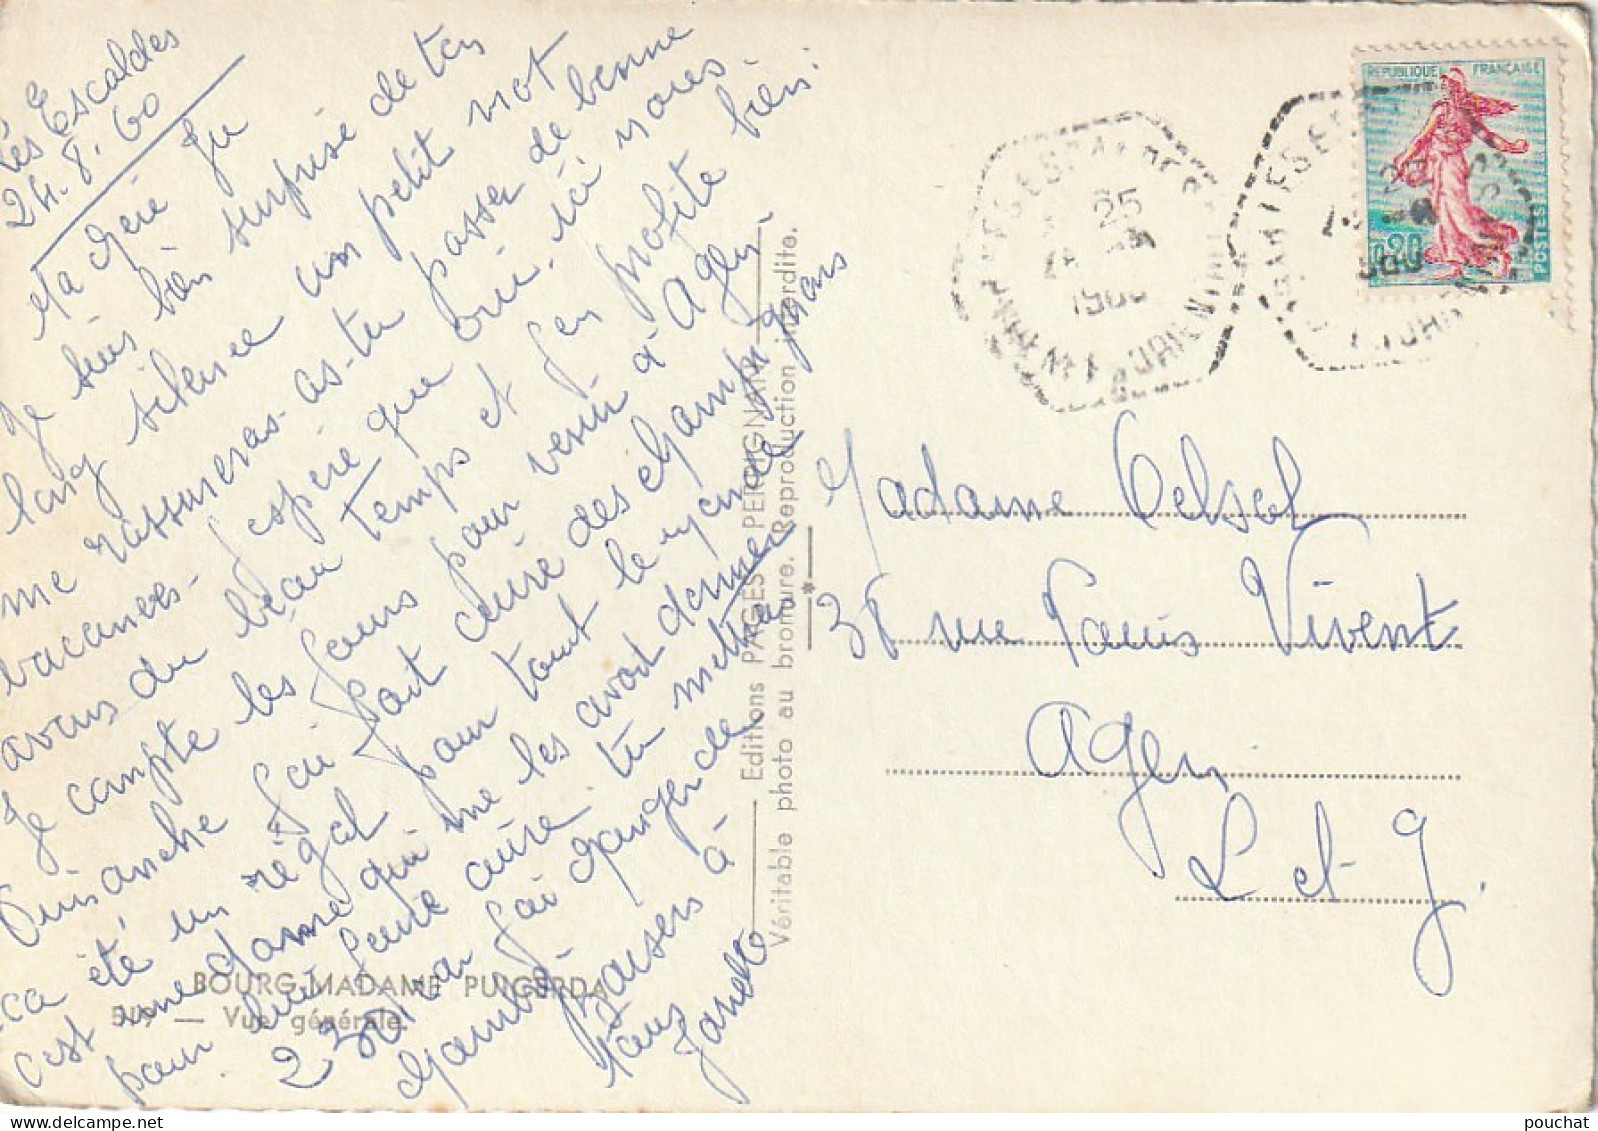 Les Escaldes
24.8.60
Ma chère Ju
Je suis bien surprise de ton
long silence un petit mot
me rassureras-as-tu passer de bonne
vacances. J'espère que oui, ici nous
avons du beau temps et j'en profite bien.
Je compte les jours pour venir à Agen
Dimanche j'ai fait cuire des champignons
ça été un régal pour tout le monde
c'est une dame qui me les avait donner
pour lui faire cuire tu mettra
230 car j'ai changer de
chambre
Baisers à
tous
Janette
BOURG-MADAME PUIGCERDA
519 — Vue générale.
Editions PAGES PERPIGNAN
Véritable photo au bromure. Reproduction interdite.
REPUBLIQUE FRANÇAISE
0,20
POSTES
25
1960
Madame Delsol
38 rue Paris Vivent
Agen
L et G.
pouchat